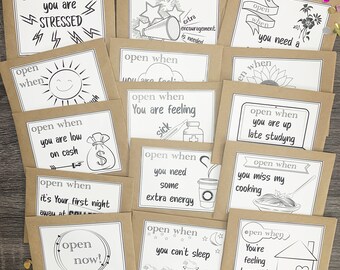 you are
STRESSED
extra
encouragement
is needed
you need a
open
when
you are feeling
open when
You are feeling
sick
open
when
open when
you are up
late studyng
open when
you are low
on cash
open when
you need
some
extra energy
open when
you miss my
cooking
open when
it's Your first night
away at
open
now!
open when
you can't sleep
open when
You're
feeling